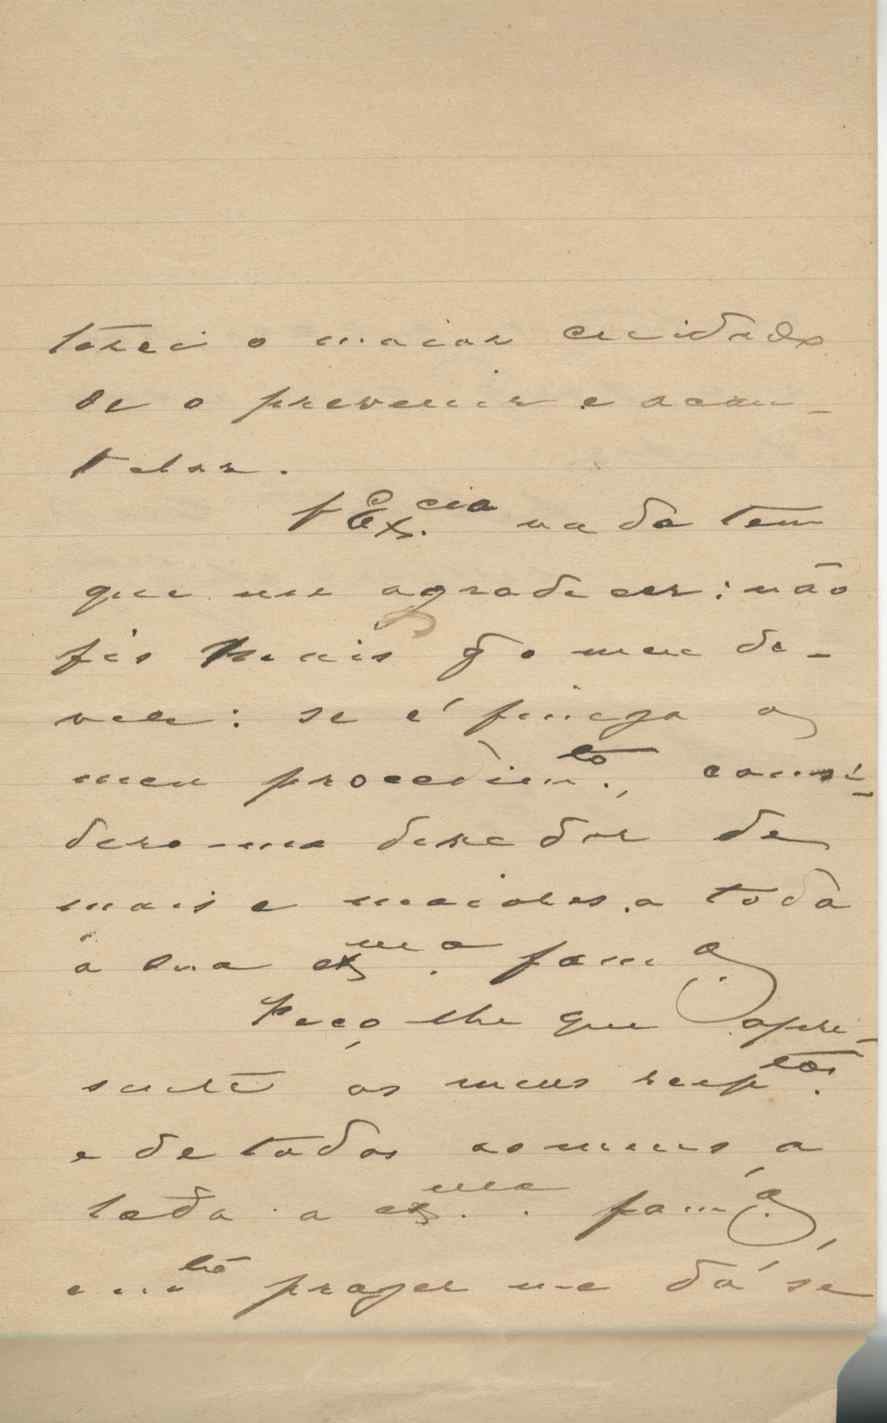 terei o maior cuidado
de o prevenir e acau-
telar.
V Ex.cia nada tem
que me agradecer: não
fiz mais q̃ o meu de-
ver: se é fineza o
meu procedim.to, consi-
dero-me devedor de
mais e maiores a toda
a sua ex.ma fam.a
Peço lhe que apre-
sente os meus resp.tos
e de todos os meus a
toda a ex.ma fam.a,
e m.to prazer me dá se